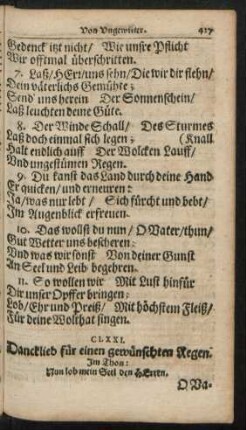 Von Ungewitter. 417
Gedenck itzt nicht/ Wie unsre Pflicht
Wir offtmal überschritten.
7. Laß/HErr/uns sehn/Die wir dir flehn/
Dein väterlichs Gemühte;
Send uns herein Der Sonnenschein/
Laß leuchten deine Güte.
8. Der Winde Schall/ Des Sturmes
Laß doch einmal sich legen; (Knall
Halt endlich auff Der Wolcken Lauff/
Und ungestümen Regen.
9. Du kanst das Land durch deine Hand
Erquicken/ und erneuren:
Ja/was nur lebt/ Sich fürcht und hebt/
Im Augenblick erfreuen.
10. Das wollst du nun/ O Vater/thun/
Gut Wetter uns bescheren:
Und was wir sonst Von deiner Gunst
An Seel und Leib begehren.
11. So wollen wir Mit Lust hinfür
Dir unser Opffer bringen:
Lob/Ehr und Preiß/ Mit höchstem Fleiß/
Für deine Wolthat singen.
CLXXI.
Dancklied für einen gewünschten Regen.
Im Thon:
Nun lob mein Seel den HErrn.
O Va-